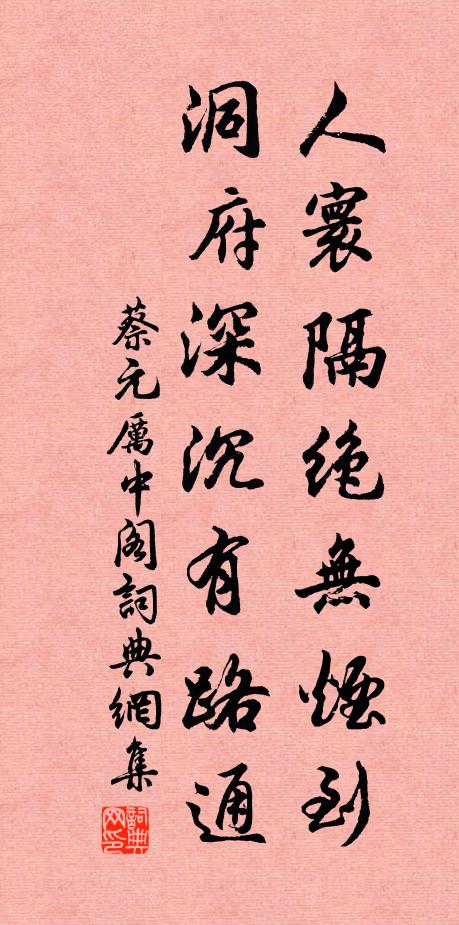 人寰隔絶無煙到
洞府深沉有路通
蔡元厲中阁詞典網集
詞典网印